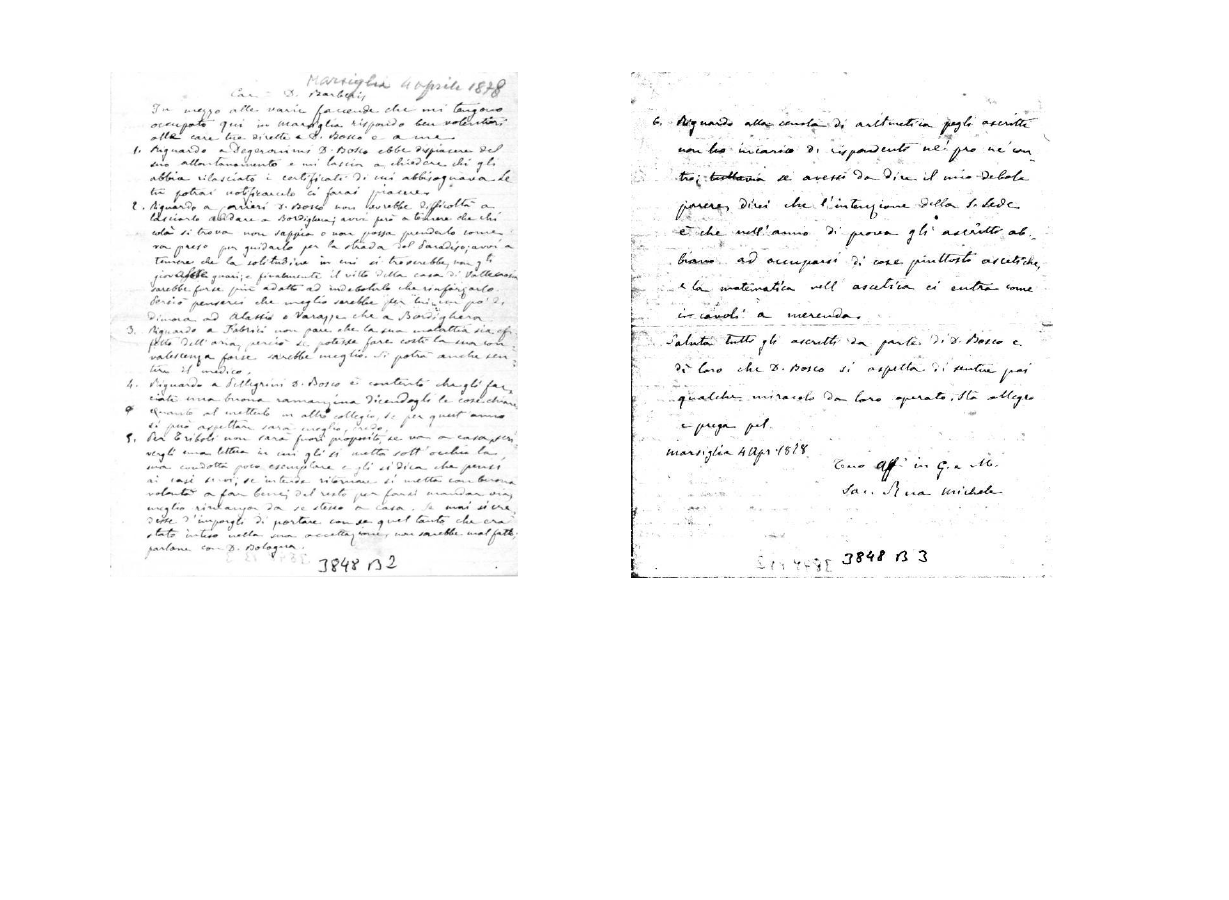 Marsiglia 4 aprile 1878
Car. D. Barberis,
In mezzo alle varie faccende che mi tengono
occupato qui in Marsiglia rispondo ben volentieri
alle care tue dirette a D. Bosco e a me
1. Riguardo a Degeronimi D. Bosco ebbe dispiacere del
suo allontanamento e mi lascia a chiedere chi gli
abbia rilasciato i certificati di cui abbisognava. Se
tu potrai notificarcelo ci farai piacere.
2. Riguardo a D. Bosco non avrebbe difficoltà a
lasciarlo andare a Bordighera; avvi però a temere che chi
colà si trova non sappia o non possa prenderlo come
va preso per guidarlo per la strada del Paradiso; avvi a
temere che la solitudine in cui si troverebbe, non gli
guari; e finalmente il vitto della casa di Vallecrosia
sarebbe forse più adatto ad indebolirlo che rinforzarlo.
Perciò penserei che meglio sarebbe per lui un po' di
dimora ad Alassio o Varazze che a Bordighera
3. Riguardo a Fabrici non pare che la sua malattia sia ef-
fetto dell'aria, perciò se potesse fare costì la sua con-
valescenza forse sarebbe meglio. Si potrà anche sen-
tire il medico.
4. Riguardo a Pellegrini D. Bosco è contento che gli fac-
ciate una buona ramanzina dicendogli le cose chiare
Quanto al metterlo in altro collegio, se per quest'anno
si può aspettare sarà meglio, credo.
5. Per Eriboli non sarà fuor proposito, se va a casa, scri-
vergli una lettera in cui gli si metta sott'occhio la
sua condotta poco esemplare e gli si dica che pensi
ai casi suoi; se intende ritornare si metta con buona
volontà a far bene; del resto per farsi mandar via,
meglio rimanga da se stesso a casa. Se mai si cre-
desse d'imporgli di portare con se quel tanto che era
stato inteso nella sua accettazione, non sarebbe mal fatto
parlane con D. Bologna.
3848 B 2
6. Riguardo alla scuola di aritmetica pegli ascritti
non ho incarico di risponderti nè pro nè con-
tro; tuttavia se avessi da dire il mio debole
parere, direi che l'intenzione della S. Sede
è che nell'anno di prova gli ascritti ab-
biano ad occuparsi di cose piuttosto ascetiche,
e la matematica nell'ascetica ci entra come
i cavoli a merenda.
Saluta tutti gli ascritti da parte di D. Bosco e
di loro che D. Bosco si aspetta di sentire poi
qualche miracolo da loro operato. Sta allegro
e prega pel
Marsiglia 4 Apr. 1878
Tuo aff. in G. e M.
Sac. Rua Michele
3848 B 3